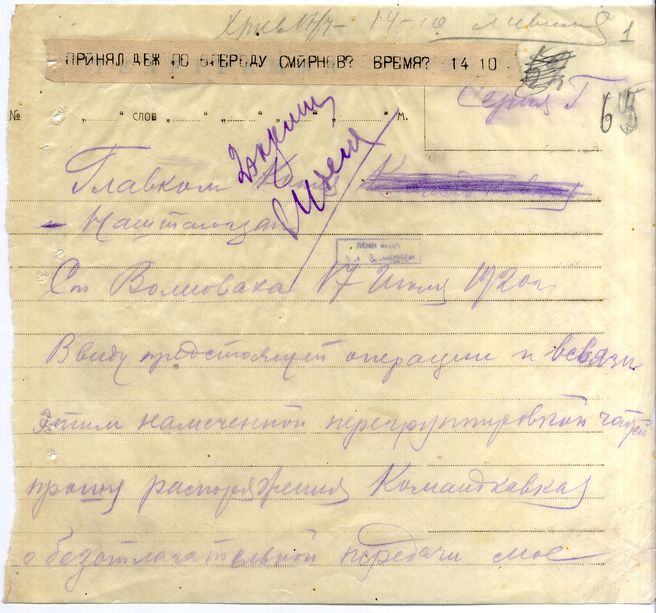 17/7 - 14-10
1
ПРИНЯЛ ДЕЖ ПО ЕПЕРОДУ СМИРНОВ? ВРЕМЯ? 14 10
Серия Г
65
№ „ “ слов „ “ „ “ „ “ м.
Главком
Наштаюзап
Ст Волноваха 17 Июля 1920г
Ввиду предстоящей операции и всвязи
этим намеченной перегруппировкой частей
прошу распоряжения Командкавказ
о безотлагательной передачи мое